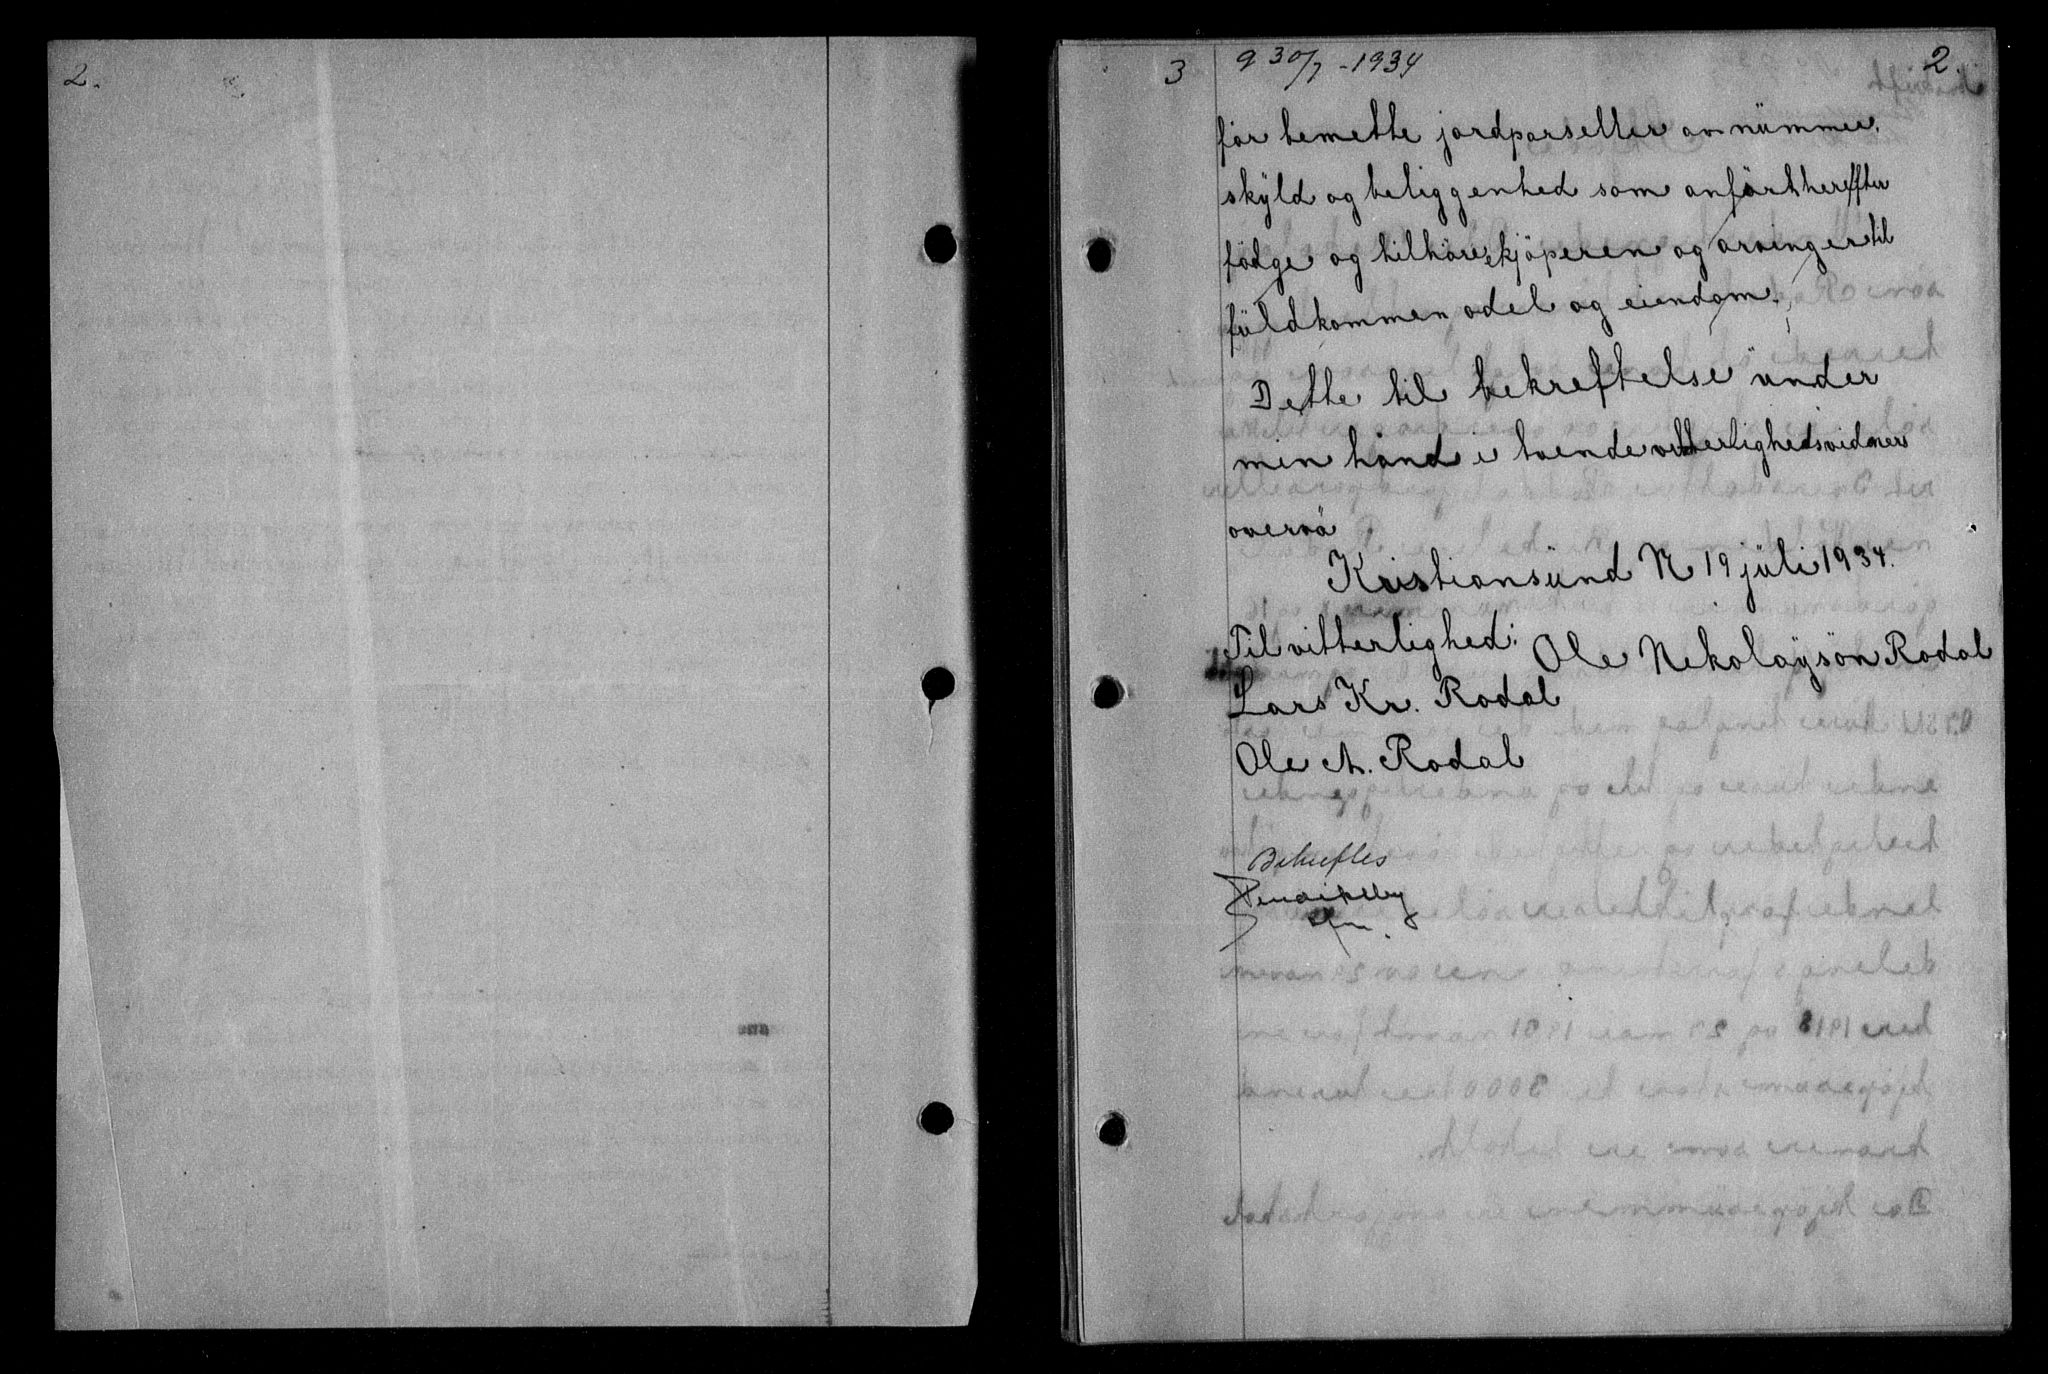 2.
3 9 30/7 - 1934 2.
för bemelte jordparseller av nümmer,
skÿld og beliggenhed som anfört hereffter
födge og tilhöre kjöperen og arvinger til
füldkommen odel og eiendom.
Dette til bekreftelse ünder
min hånd i tvende vitterlighedsvidners
overvä
Kristiansünd N 19 jüli 1934.
Til vitterlighed: Ole Nekolaÿsön Rodal
Lars Kr. Rodal
Ole A. Rodal
Bekreftes